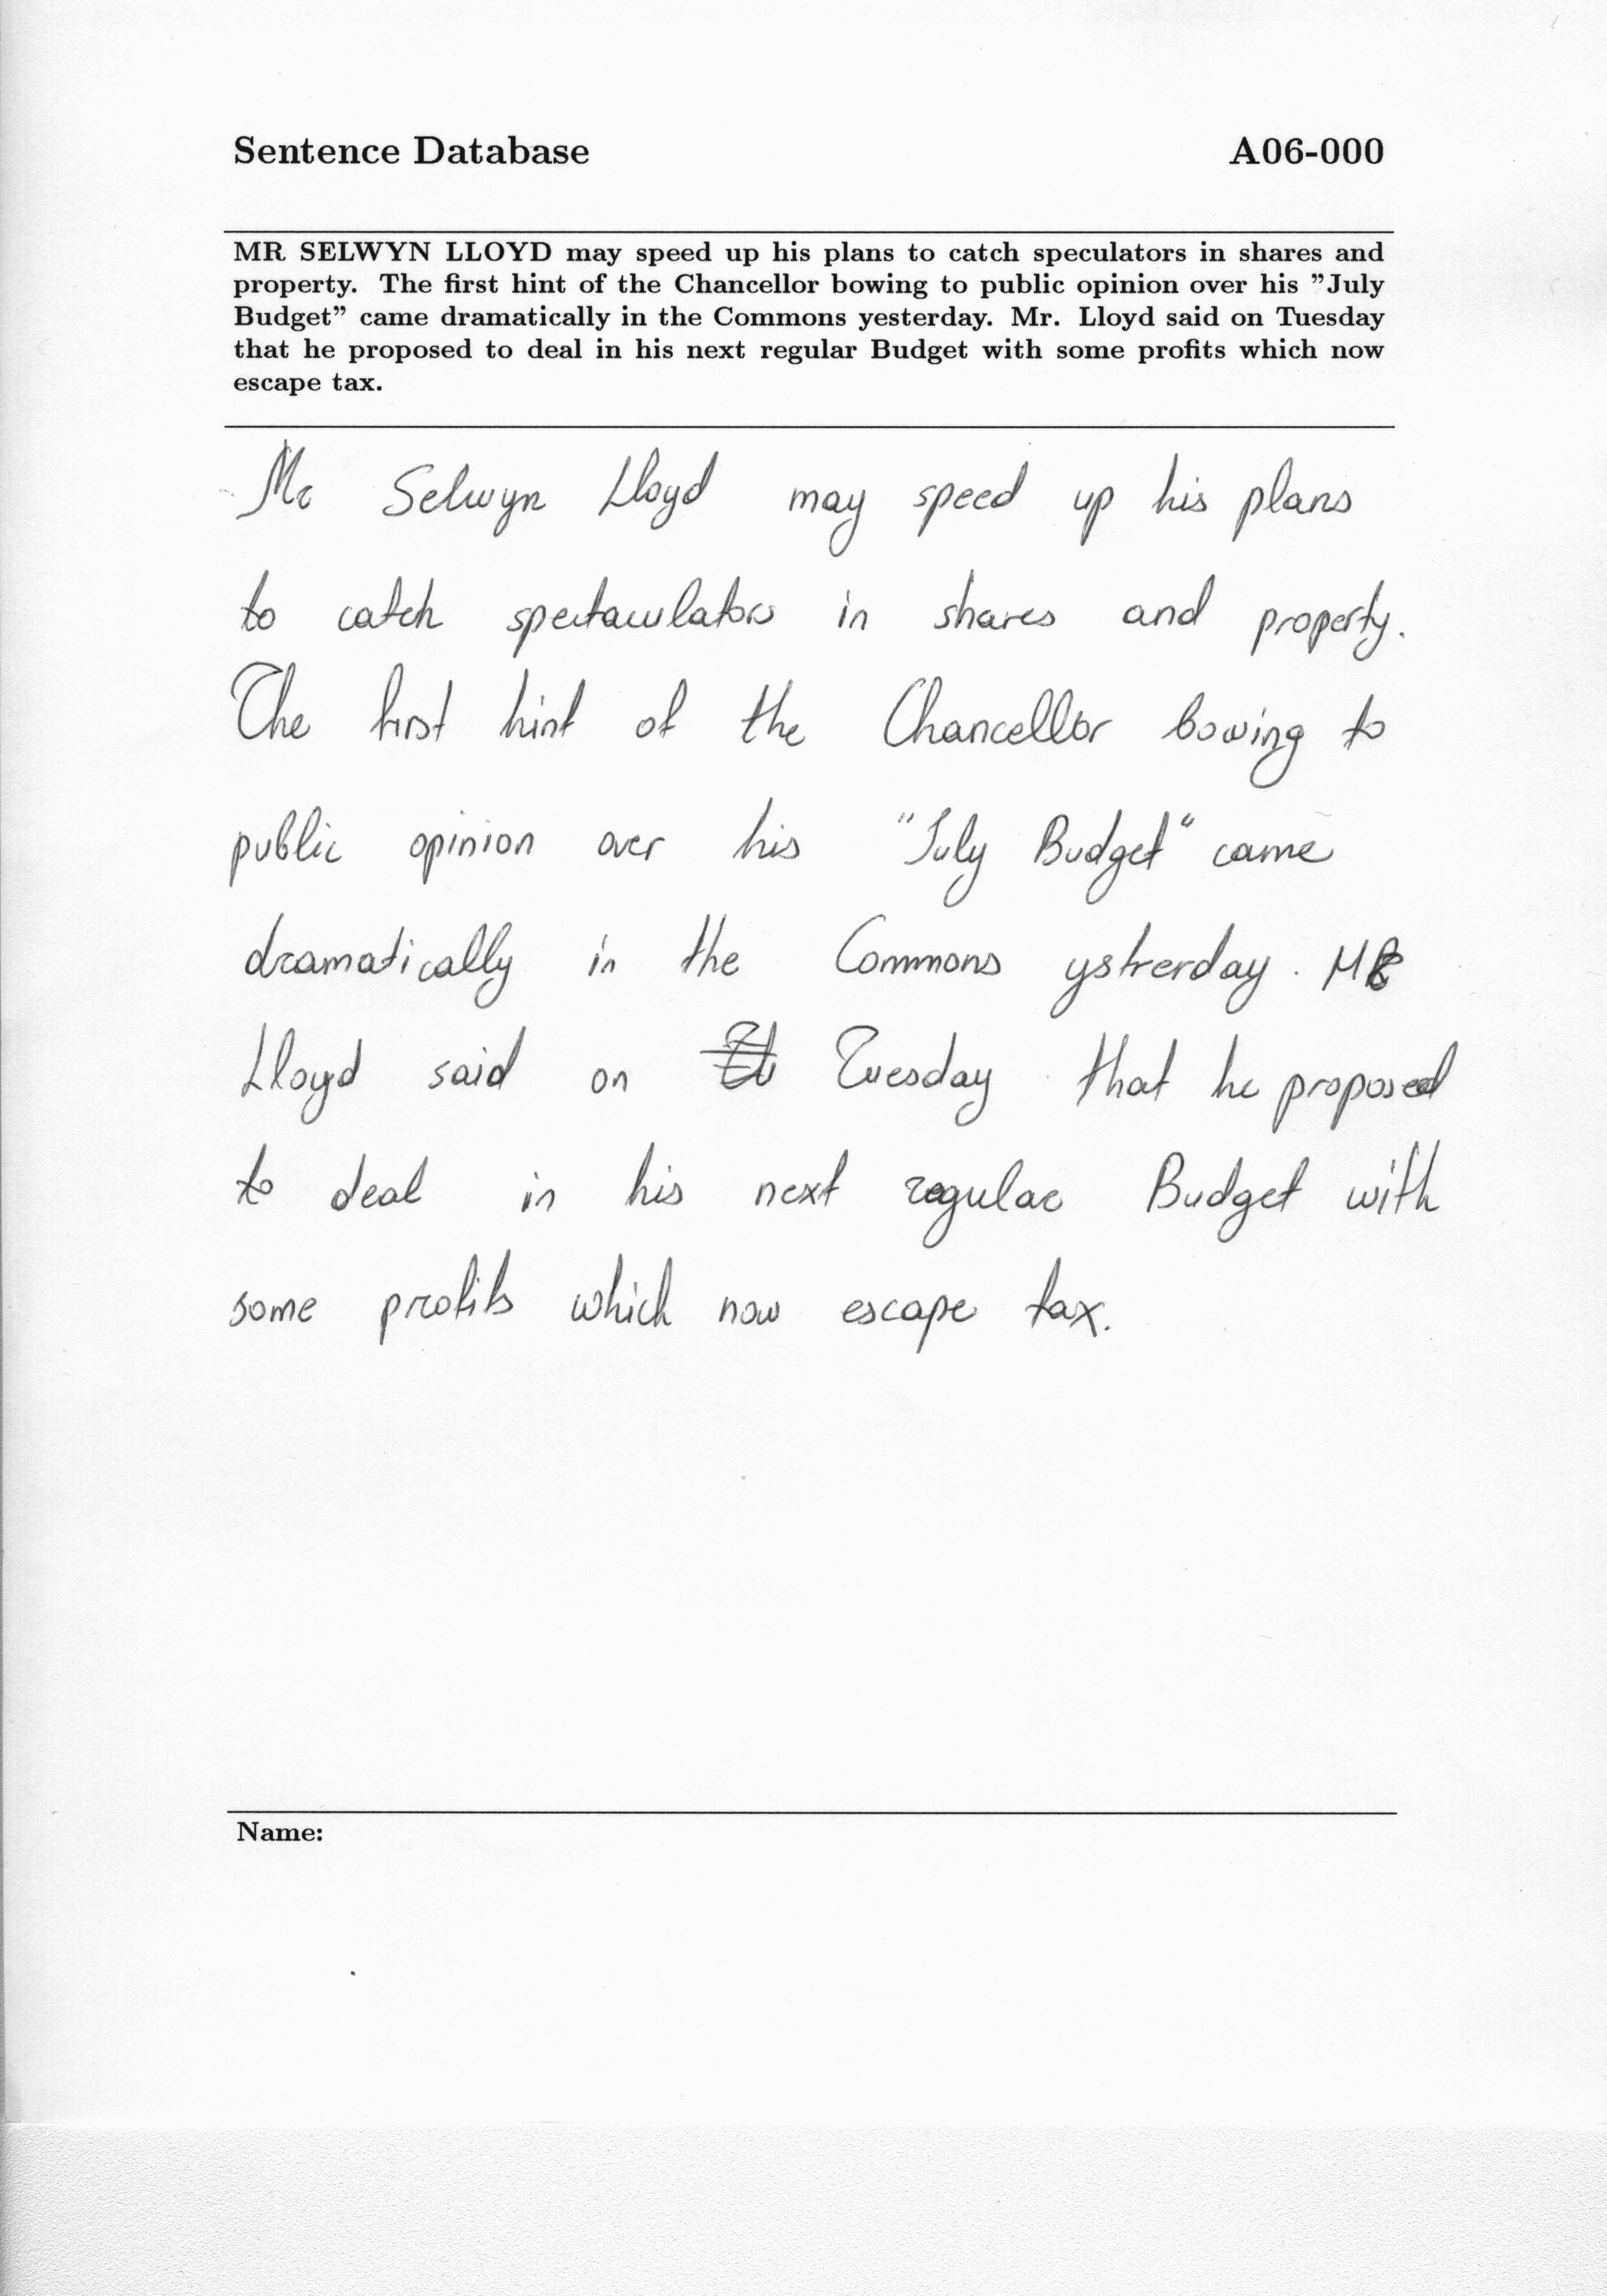 Sentence Database A06-000
MR SELWYN LLOYD may speed up his plans to catch speculators in shares and
property. The first hint of the Chancellor bowing to public opinion over his ”July
Budget” came dramatically in the Commons yesterday. Mr. Lloyd said on Tuesday
that he proposed to deal in his next regular Budget with some profits which now
escape tax.
Mr Selwyn Lloyd may speed up his plans
to catch spectaculators in shares and property.
The first hint of the Chancellor bowing to
public opinion over his "July Budget" came
dramatically in the Commons ysterday. MR
Lloyd said on Tuesday that he proposed
to deal in his next regular Budget with
some profits which now escape tax.
Name: